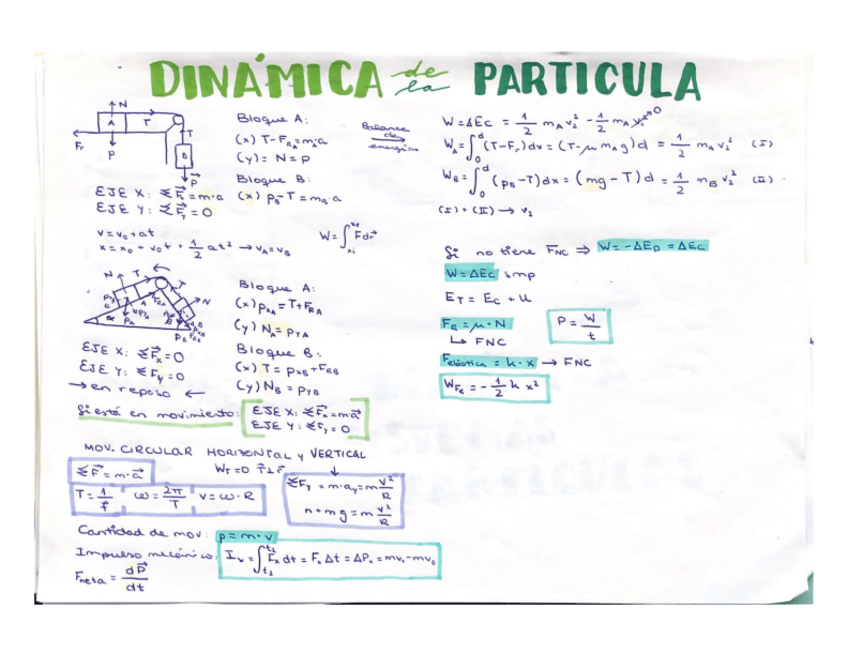 DINÁMICA de la PARTICULA
N
T
A
Fr
P
T
B
P
Bloque A:
(x) T-F_RA=m_A·a
(y)= N=P
Bloque B:
(x) P_B-T=m_B·a
EJE X: ΣF⃗x=m·a
EJE Y: ΣF⃗y=0
v=v₀+at
x=x₀+v₀t+1/2 at² → v_A=v_B
W=∫F⃗dr⃗
Balance de energías
W=ΔEc = 1/2 m_A v₂² - 1/2 m_A v₁² 0
W_A=∫₀^d (T-Fr)dx = (T-μ m_A g)d = 1/2 m_A v₂² (I)
W_B=∫₀^d (P_B-T)dx = (mg-T)d = 1/2 m_B v₂² (II)
(I)+(II) → v₂
Si no tiene F_NC ⇒ W=-ΔEp=ΔEc
W=ΔEc smp
E_T = Ec + U
F_R = μ·N
↳ FNC
P = W/t
Felástica = k·x → FNC
W_Fe = -1/2 k x²
Bloque A:
(x) P_XA=T+F_RA
(y) N_A=P_YA
Bloque B:
(x) T=P_XB+F_RB
(y) N_B=P_YB
EJE X: ΣF⃗x=0
EJE Y: ΣF⃗y=0
→ en reposo ←
Si está en movimiento:
EJE X: ΣF⃗x=ma⃗
EJE Y: ΣFy=0
MOV. CIRCULAR HORIZONTAL y VERTICAL
ΣF⃗=m·a⃗
W_T=0 r⃗⊥F⃗
T=1/f ω=2π/T v=ω·R
ΣFy=m·ay=m v²/R
n+mg=m v²/R
Cantidad de mov: p=m·v
Impulso mecánico: Ix=∫Fx dt=Fx Δt=ΔPx=mv₂-mv₀
Fneta = dP⃗/dt